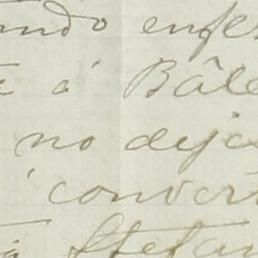 ando enfer
á Bâle
no deja
conver
Stefan